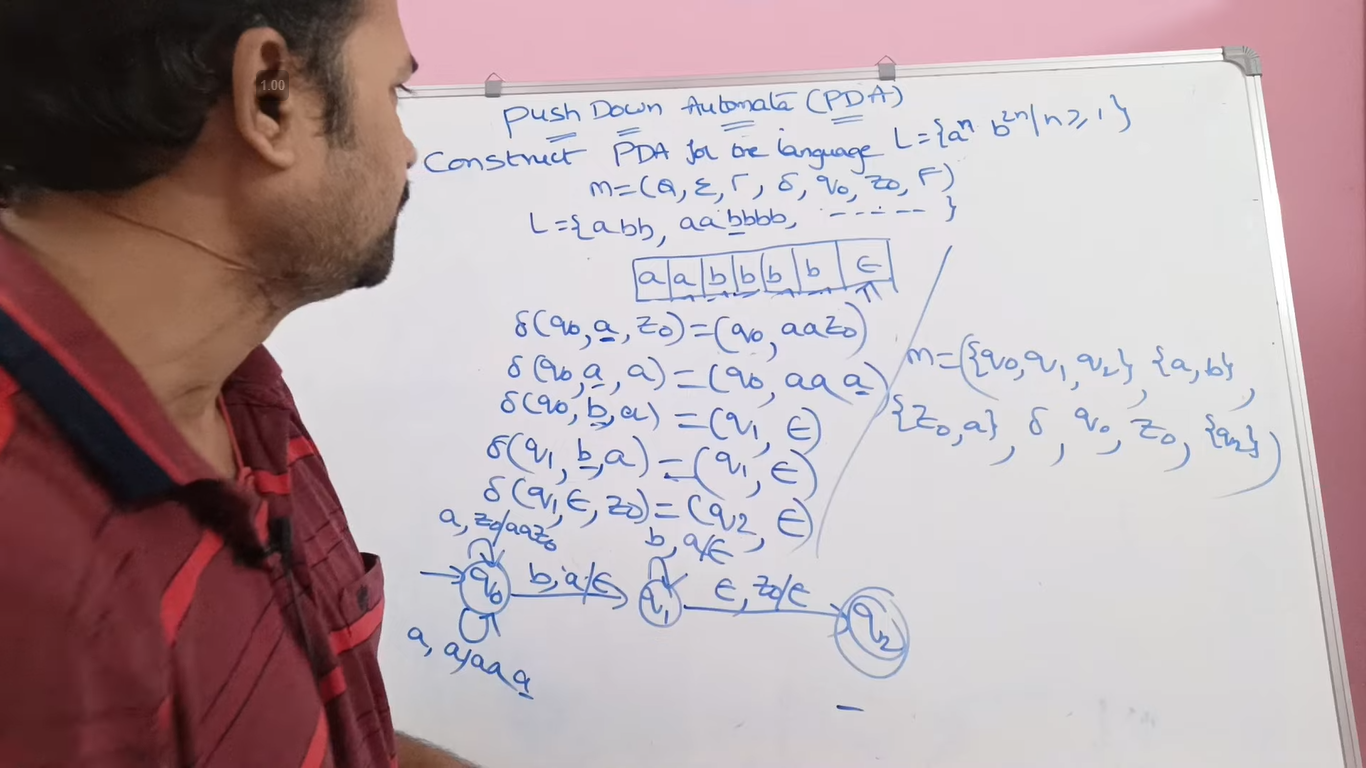 1.00
Push Down Automata (PDA)
Construct PDA for the language L={aⁿ b²ⁿ/n≥1}
m=(Q, Σ, Γ, δ, q₀, z₀, F)
L={abb, aabbbb, ------ }
a a b b b b ϵ
δ(q₀, a, z₀)=(q₀, aaz₀)
δ(q₀, a, a)=(q₀, aaa)
δ(q₀, b, a)=(q₁, ϵ)
δ(q₁, b, a)=(q₁, ϵ)
δ(q₁, ϵ, z₀)=(q₂, ϵ)
m=({q₀, q₁, q₂}, {a, b},
{z₀, a}, δ, q₀, z₀, {q₂})
a, z₀/aaz₀
b, a/ϵ
q₀ b, a/ϵ q₁ ϵ, z₀/ϵ q₂
a, a/aaa